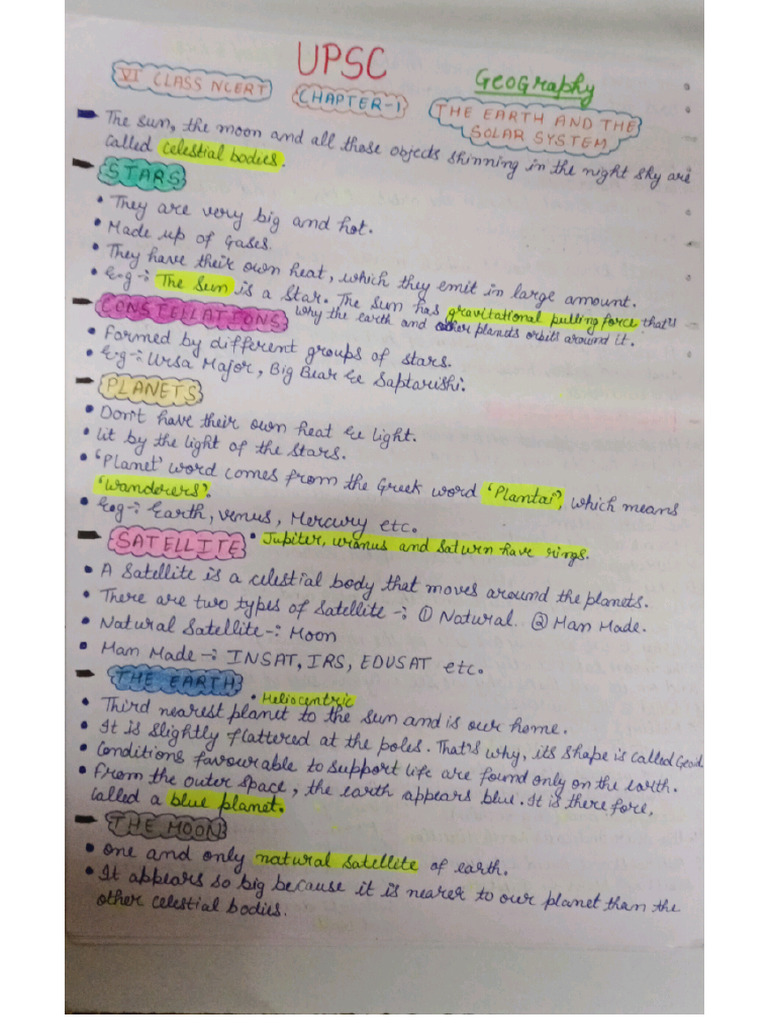 UPSC
VI CLASS NCERT
CHAPTER-1
Geography
THE EARTH AND THE
SOLAR SYSTEM
The sun, the moon and all those objects shinning in the night sky are
called celestial bodies.
STARS
• They are very big and hot.
• Made up of Gases.
• They have their own heat, which they emit in large amount.
• E.g -: The Sun is a Star. The Sun has gravitational pulling force that's
why the earth and other planets orbit around it.
CONSTELLATIONS
• Formed by different groups of stars.
• E.g -: Ursa Major, Big Bear & Saptarishi.
PLANETS
• Don't have their own heat & light.
• Lit by the light of the stars.
• 'Planet' word comes from the Greek word 'Plantai', which means
'Wanderers'.
• E.g -: Earth, Venus, Mercury etc.
• Jupiter, uranus and Saturn have rings.
SATELLITE
• A Satellite is a celestial body that moves around the planets.
• There are two types of Satellite -: ① Natural. ② Man Made.
• Natural Satellite -: Moon
• Man Made -: INSAT, IRS, EDUSAT etc.
THE EARTH
• Heliocentric
• Third nearest planet to the sun and is our home.
• It is slightly flattered at the poles. That's why, its shape is called Geoid
• Conditions favourable to support life are found only on the earth.
• From the outer space, the earth appears blue. It is there fore,
called a blue planet.
THE MOON
• One and only natural satellite of earth.
• It appears so big because it is nearer to our planet than the
other celestial bodies.